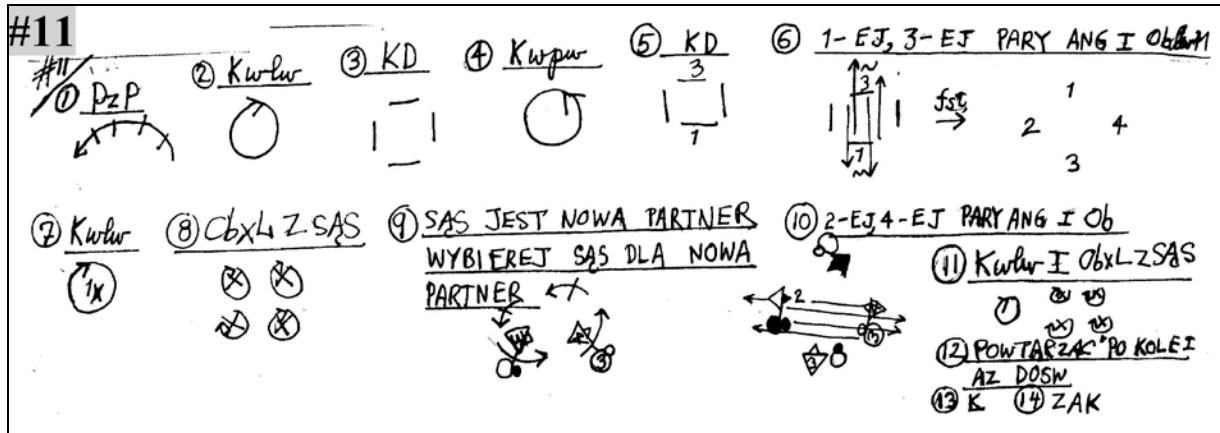 #11
#11
① PzP
② Kwlw
③ KD
④ Kwpw
⑤ KD
3
1
⑥ 1-EJ, 3-EJ PARY ANG I
3
1
fst
1
2 4
3
⑦ Kwlw
1x
⑧ ObxL Z SĄS
⑨ SĄS JEST NOWA PARTNER
WYBIEREJ SĄS DLA NOWA
PARTNER
3
⑩ 2-EJ, 4-EJ PARY ANG I Ob
2
3
⑪ Kwlw I ObxL Z SĄS
⑫ POWTARZAC PO KOLEI
AZ DOSW
⑬ K ⑭ ZAK